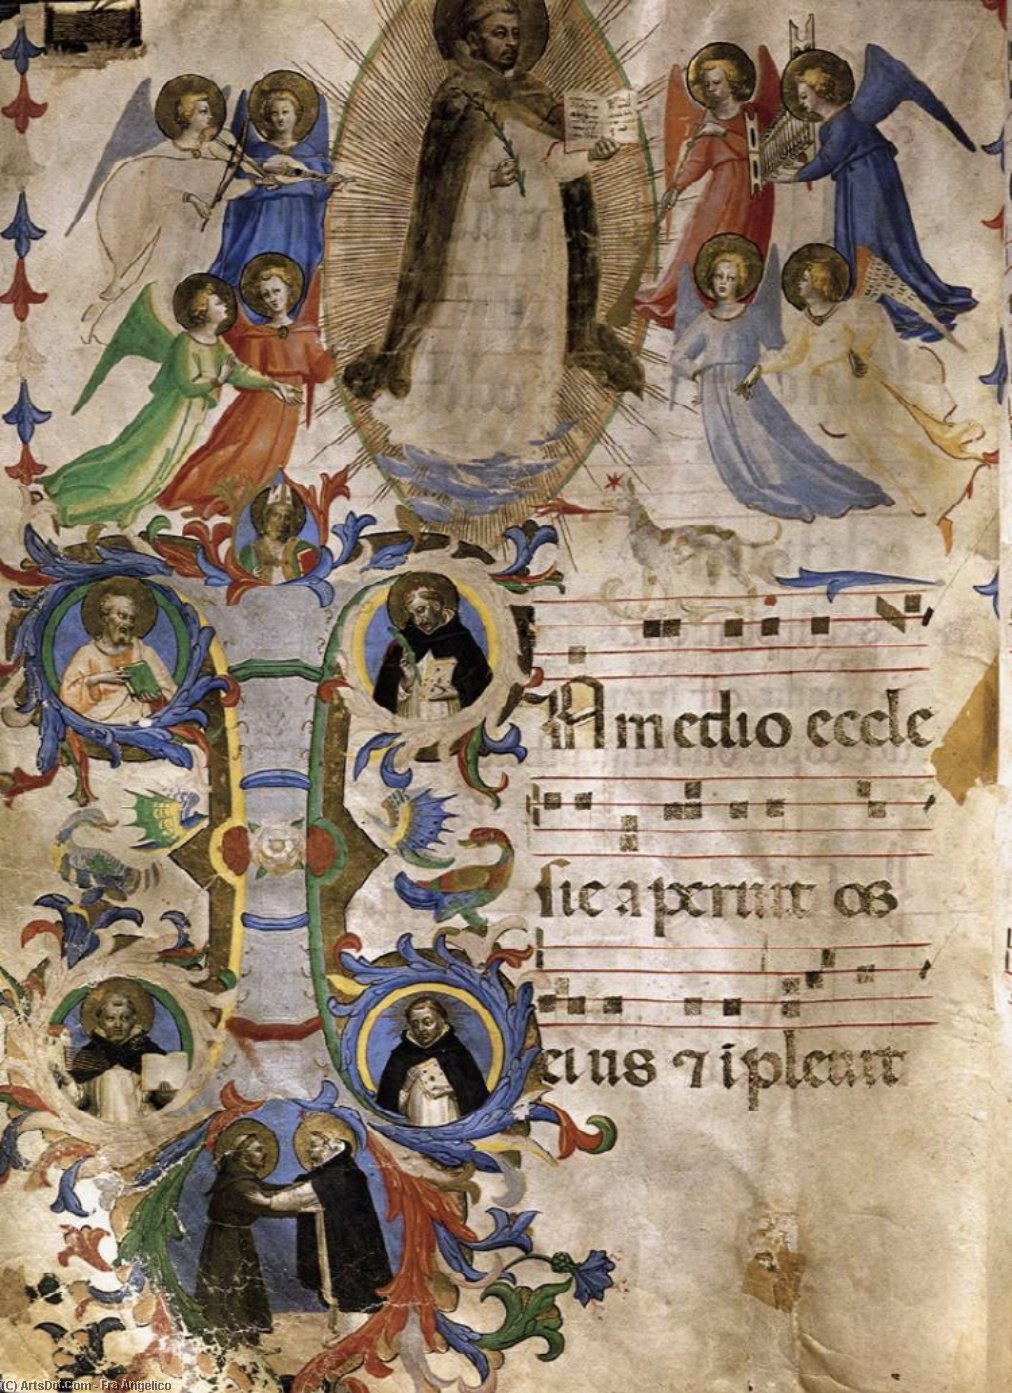 In medio eccle
sie aperuit os
eius ⁊ ipleuit
(C) ArtsDot.Com - Fra Angelico